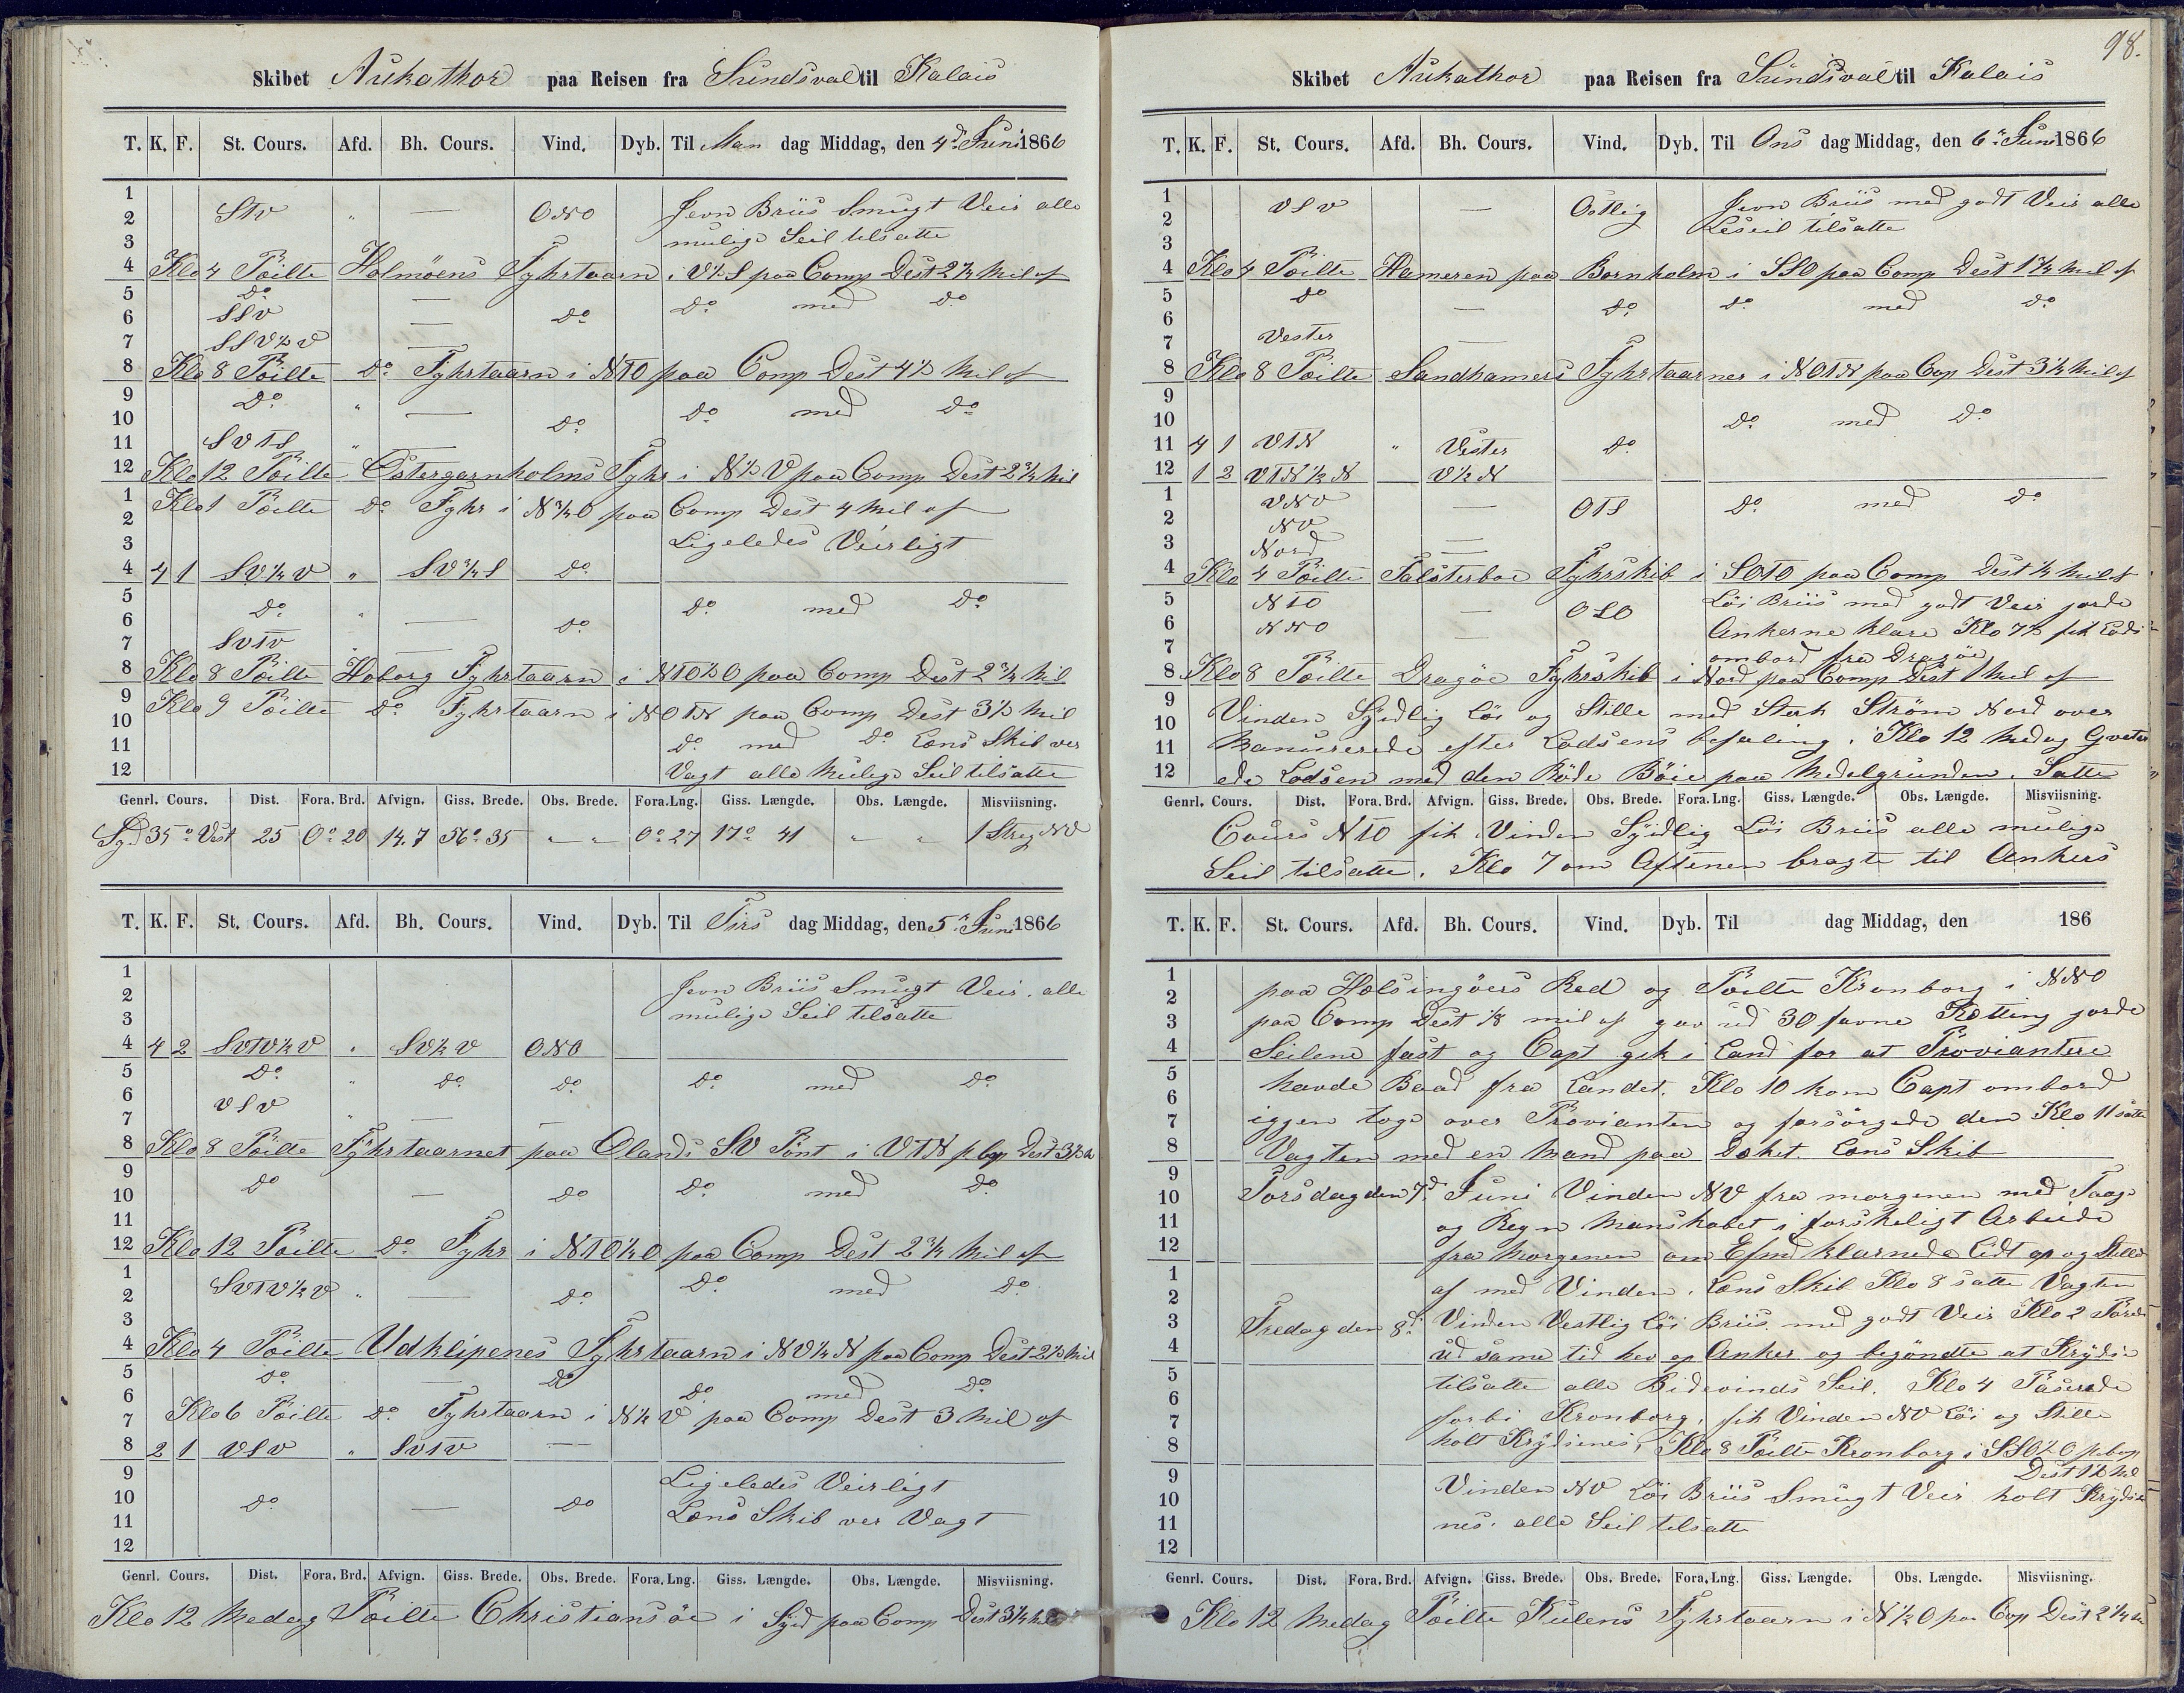 Skibet Aukathor paa Reisen fra Sundsval til Kalais
T. K. F. St. Cours. Afd. Bh. Cours. Vind. Dyb. Til Man dag Middag, den 4d Juni 1866
1
2 StV " — ONO Jevn Briis Smugt Veir alle
3 mulige Seil tilsatte
4 Klo 4 Poilte Holmöens Fyhrtaarn i V½S paa Comp Dest 2¾ Mil af
5 Do — Do med Do
6 SSV — Do
7 SSV½V —
8 Klo 8 Poilte Do Fyhrtaarn i NTO paa Comp Dest 4½ Mil af
9 Do " — Do med Do
10 Do
11 SVTS " —
12 Klo 12 Poilte Östergarnholms Fyhr i N½V paa Comp Dest 2¾ Mil
1 Klo 1 Poilte Do Fyhr i N¾O paa Comp Dest 4 Mil af
2
3 Ligeledes Veirligt
4 4 1 SV¼V " SV¾S Do
5 Do " Do med Do
6 — Do
7 SVTV —
8 Klo 8 Poilte Hoborg Fyhrtaarn i NTO½O paa Comp Dest 2¾ Mil
9 Klo 9 Poilte Do Fyhrtaarn i NOTN paa Comp Dest 3½ Mil
10
11 Do med Do Lens Skib ver
12 Vagt alle Mulige Seil tilsatte
Genrl. Cours. Dist. Fora. Brd. Afvign. Giss. Brede. Obs. Brede. Fora. Lng. Giss. Længde. Obs. Længde. Misviisning.
Syd 35° Vest 25 0° 20 14.7 56° 35 " " 0° 27 17° 41 " " 1 Streg NV
T. K. F. St. Cours. Afd. Bh. Cours. Vind. Dyb. Til Tirs dag Middag, den 5d Juni 1866
1 Jevn Briis Smugt Veir. alle
2
3 mulige Seil tilsatte
4 4 2 SVTV½V " SV½V ONO
5 Do " Do Do Do med Do
6 VSV
7 " —
8 Klo 8 Poilte Fyhrtaarnet paa Ölands SV Pönt i VTN p Cop Dest 3½ M
9 Do Do med Do
10 — Do
11
12 Klo 12 Poilte Do Fyhr i NTO½O paa Comp Dest 2¾ Mil af
1 SVTV½V " — Do Do med Do
2
3
4 Klo 4 Poilte Udklipenes Fyhrtaarn i NV¼N paa Comp Dest 2½ Mil
5 Do — Do Do med Do
6 Klo 6 Poilte Do Fyhrtaarn i N½V paa Comp Dest 3 Mil af
7
8 2 1 VSV " SVTV —
9 Ligeledes Veirligt
10 Do — Do
11 Lens Skib ver Vagt
12
Genrl. Cours. Dist. Fora. Brd. Afvign. Giss. Brede. Obs. Brede. Fora, Lng. Giss. Længde. Obs. Længde. Misviisning.
Klo 12 Medag Poilte Christiansöe i Syd paa Comp Dest 3¼ Mil
98.
Skibet Aukathor paa Reisen fra Sundsval til Kalais
T. K. F. St. Cours. Afd. Bh. Cours. Vind. Dyb. Til Ons dag Middag, den 6d Juni 1866
1 VSV — Östlig Jevn Briis med godt Veir alle
2 Leseil tilsatte
3
4 Klo 4 Poilte Hameren paa Bornholm i SSO paa Comp Dest 1¾ Mil af
5 Do — Do Do med Do
6
7 Vester —
8 Klo 8 Poilte Sandhamers Fyhrtaarner i NOTN paa Cop Dest 3½ Mil af
9
10 Do med Do
11 4 1 VTN " Vester Do
12 1 2 VTN½N V½N
1 VNV — OTS Do med Do
2 NV
3 Nord —
4 Klo 4 Poilte Falsterboe Fyhrskib i SOTO paa Comp Dest ½ Mil af
5 NTO — OSO Löi Briis med godt Veir gorde
6 NNO Ankerne klare Klo 7½ fik Lods
7 ombord fra Dragöe
8 Klo 8 Poilte Dragöe Fyhrskib i Nord paa Comp Dest 1 Mil af
9 Vinden Sydlig Löi og Stille med Sterk Ström Nord over
10
11 Manuvrerede efter Lodsens befaling. Klo 12 Medag Qveter
12 ede Lodsen med den Röde Böie paa Medelgrunden. Satte
Genrl. Cours. Dist. Fora. Brd. Afvign. Giss. Brede. Obs. Brede. Fora. Lng. Giss. Længde. Obs. Længde. Misviisning.
Cours NTO fik Vinden Sydlig Löi Briis alle mulige
Seil tilsatte. Klo 7 om Aftenen bragte til Ankers
T. K. F. St. Cours. Afd. Bh. Cours. Vind. Dyb. Til dag Middag, den 186
1 paa Helsingöers Red og Poilte Kronborg i NNO
2
3 paa Comp Dest ⅛ mil af gav ud 30 favne Kætting gorde
4 Seilene fast og Capt gik i Land for at Proviantere
5 havde Baad fra Landet. Klo 10 kom Capt ombord
6
7 iggen toge over Provianten og forsörgede den Klo 11 satte
8 Vagten med en Mand paa Deket. Lens Skib
9
10 Torsdag den 7d Juni Vinden NV fra morgenen med Taage
11 og Regn Manskabet i forskeligt Arbeide
12 fra Morgenen om Efmd klarnede Lidt op og Stilled
1 af med Vinden. Lens Skib Klo 8 satte Vagten
2
3 Fredag den 8d Vinden Vestlig Löi Briis med godt Veir Klo 2
4 ud same tid hev op Anker og begöndte at Krydse
5 tilsatte alle Bidevinds Seil. Klo 4 Paserede
6
7 forbi Kronborg, fik Vinden NV Löi og Stille
8 holt Krydsenes, Klo 8 Poilte Kronborg i SSO½O p Cop
9 Dest 1½ Ml
10 Vinden NV Löi Briis Smugt Veir holt Krydse
11 nes. alle Seil tilsatte
12
Genrl. Cours. Dist. Fora. Brd. Afvign. Giss. Brede. Obs. Brede. Fora, Lng. Giss. Længde. Obs. Længde. Misviisning.
Klo 12 Medag Poilte Kulens Fyhrtaarn i N½O paa Cop Dest 2¼ M